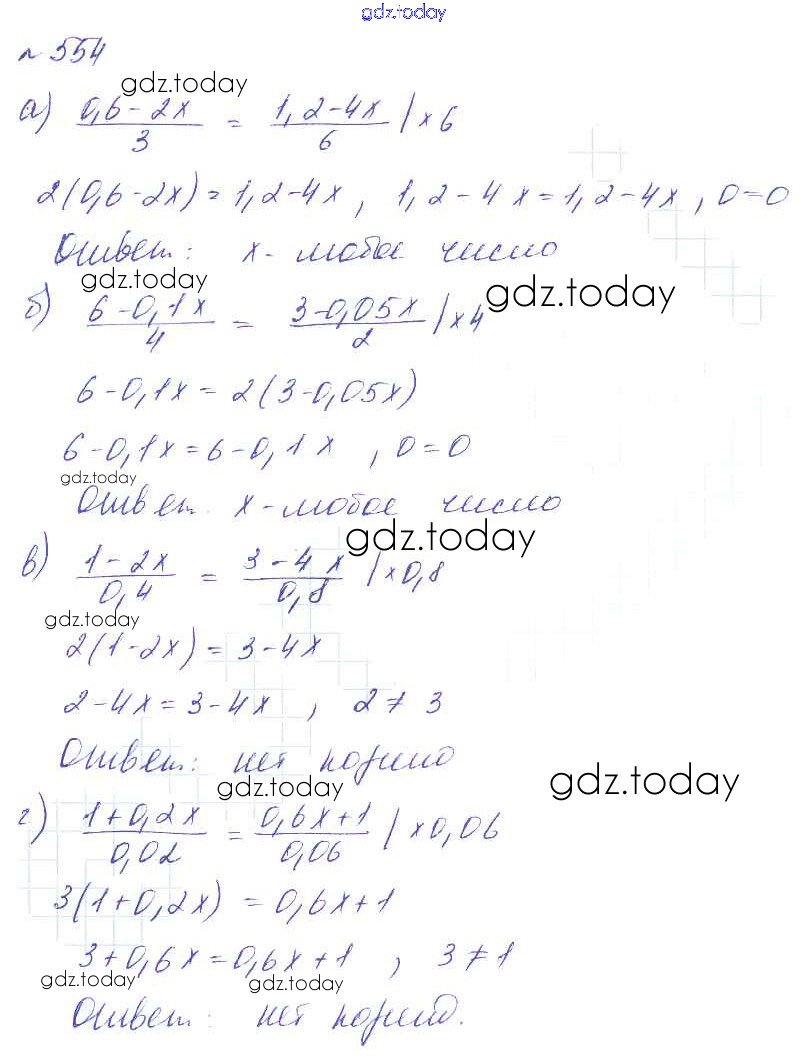 gdz.today
№ 554
gdz.today
а) (0,6-2x)/3 = (1,2-4x)/6 | ×6
2(0,6-2x) = 1,2-4x, 1,2-4x = 1,2-4x, 0=0
Ответ: x - любое число
gdz.today
gdz.today
б) (6-0,1x)/4 = (3-0,05x)/2 | ×4
6-0,1x = 2(3-0,05x)
6-0,1x = 6-0,1x, 0=0
gdz.today
Ответ. x - любое число
gdz.today
в) (1-2x)/0,4 = (3-4x)/0,8 | ×0,8
gdz.today
2(1-2x) = 3-4x
2-4x = 3-4x, 2≠3
Ответ: нет корней
gdz.today
gdz.today
г) (1+0,2x)/0,02 = (0,6x+1)/0,06 | ×0,06
3(1+0,2x) = 0,6x+1
3+0,6x = 0,6x+1, 3≠1
gdz.today
gdz.today
Ответ: нет корней.